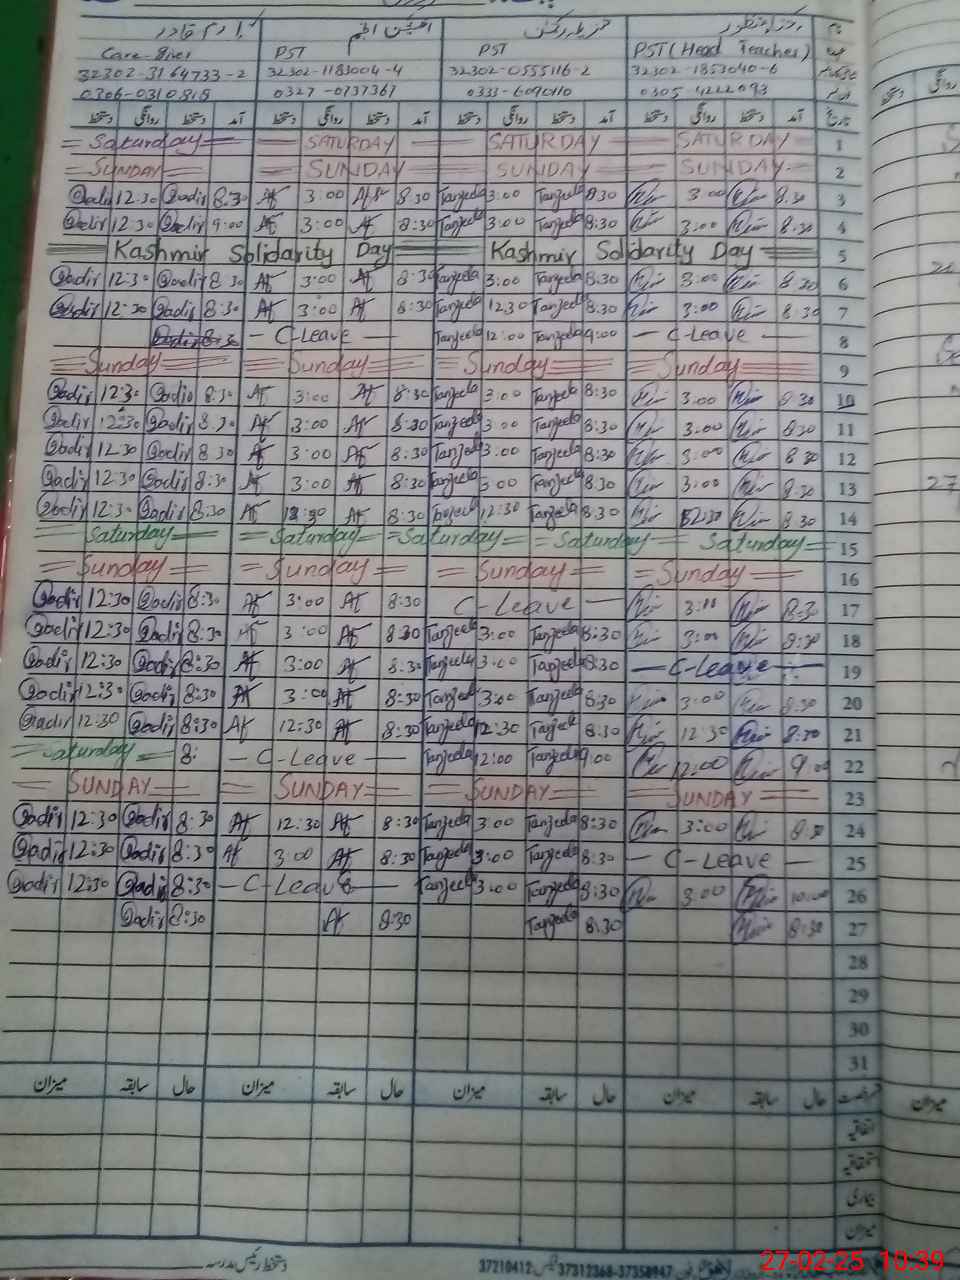 Care-Giver PST PST PST (Head Teacher)
32302-3164733-2 32302-1183004-4 32302-0555116-2 32302-1853040-6
0306-0310815 0327-0737367 0333-6090110 0305-4222093
دستخط روانگی دستخط آمد دستخط روانگی دستخط آمد دستخط روانگی دستخط آمد دستخط روانگی دستخط آمد تاریخ
Saturday SATURDAY SATURDAY SATURDAY 1
SUNDAY SUNDAY SUNDAY SUNDAY 2
Qadir 12:30 Qadir 8:30 Af 3:00 Af 8:30 Tanzeela 3:00 Tanzeela 8:30 3:00 8:30 3
Qadir 12:30 Qadir 9:00 Af 3:00 Af 8:30 Tanzeela 3:00 Tanzeela 8:30 3:00 8:30 4
Kashmir Solidarity Day Kashmir Solidarity Day 5
Qadir 12:30 Qadir 8:30 Af 3:00 Af 8:30 Tanzeela 3:00 Tanzeela 8:30 3:00 8:30 6
Qadir 12:30 Qadir 8:30 Af 3:00 Af 8:30 Tanzeela 12:30 Tanzeela 8:30 3:00 8:30 7
Qadir 8:30 – C-Leave – Tanzeela 12:00 Tanzeela 9:00 – C-Leave – 8
Sunday Sunday Sunday Sunday 9
Qadir 12:30 Qadir 8:30 Af 3:00 Af 8:30 Tanzeela 3:00 Tanzeela 8:30 3:00 8:30 10
Qadir 12:30 Qadir 8:30 Af 3:00 Af 8:30 Tanzeela 3:00 Tanzeela 8:30 3:00 8:30 11
Qadir 12:30 Qadir 8:30 Af 3:00 Af 8:30 Tanzeela 3:00 Tanzeela 8:30 3:00 8:30 12
Qadir 12:30 Qadir 8:30 Af 3:00 Af 8:30 Tanzeela 3:00 Tanzeela 8:30 3:00 8:30 13
Qadir 12:30 Qadir 8:30 Af 12:30 Af 8:30 Tanzeela 12:30 Tanzeela 8:30 12:30 8:30 14
Saturday Saturday Saturday Saturday Saturday 15
Sunday Sunday Sunday Sunday 16
Qadir 12:30 Qadir 8:30 Af 3:00 Af 8:30 C-Leave – 3:00 8:30 17
Qadir 12:30 Qadir 8:30 Af 3:00 Af 8:30 Tanzeela 3:00 Tanzeela 8:30 3:00 8:30 18
Qadir 12:30 Qadir 8:30 Af 3:00 Af 8:30 Tanzeela 3:00 Tanzeela 8:30 – C-Leave – 19
Qadir 12:30 Qadir 8:30 Af 3:00 Af 8:30 Tanzeela 3:00 Tanzeela 8:30 3:00 8:30 20
Qadir 12:30 Qadir 8:30 Af 12:30 Af 8:30 Tanzeela 12:30 Tanzeela 8:30 12:30 8:30 21
Saturday 8: – C-Leave – Tanzeela 12:00 Tanzeela 9:00 12:00 9:00 22
SUNDAY SUNDAY SUNDAY SUNDAY 23
Qadir 12:30 Qadir 8:30 Af 12:30 Af 8:30 Tanzeela 3:00 Tanzeela 8:30 3:00 8:30 24
Qadir 12:30 Qadir 8:30 Af 3:00 Af 8:30 Tanzeela 3:00 Tanzeela 8:30 – C-Leave – 25
Qadir 12:30 Qadir 8:30 – C-Leave – Tanzeela 3:00 Tanzeela 8:30 3:00 10:00 26
Qadir 8:30 Af 8:30 Tanzeela 8:30 8:30 27
28
29
30
31
میزان سابقہ حال میزان سابقہ حال میزان سابقہ حال میزان سابقہ حال رخصت
میزان
اتفاقیہ
استحقاقیہ
بیماری
میزان
دستخط رئیس مدرسہ
37210412 37312368-37358947
27-02-25 10:39